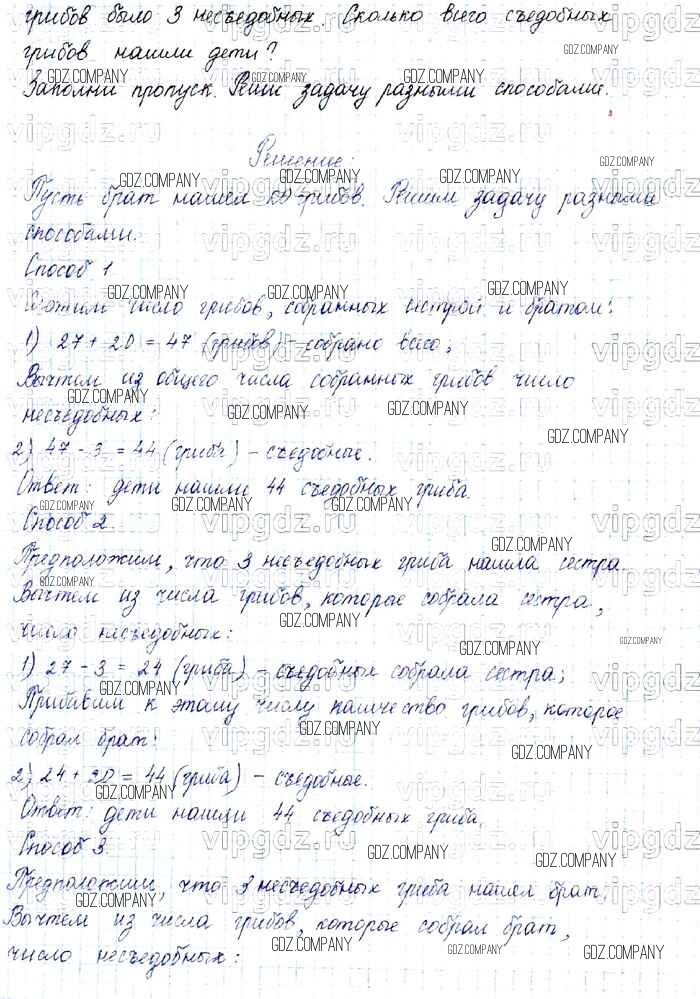 грибов было 3 несъедобных. Сколько всего съедобных
грибов нашли дети?
Заполни пропуск. Реши задачу разными способами.
Решение:
Пусть брат нашел 20 грибов. Решим задачу разными
способами.
Способ 1
Сложим число грибов, собранных сестрой и братом:
1) 27 + 20 = 47 (грибов) - собрано всего;
Вычтем из общего числа собранных грибов число
несъедобных:
2) 47 - 3 = 44 (гриба) - съедобные.
Ответ: дети нашли 44 съедобных гриба.
Способ 2.
Предположим, что 3 несъедобных гриба нашла сестра.
Вычтем из числа грибов, которые собрала сестра,
число несъедобных:
1) 27 - 3 = 24 (гриба) - съедобных собрала сестра;
Прибавим к этому числу количество грибов, которое
собрал брат:
2) 24 + 20 = 44 (гриба) - съедобные.
Ответ: дети нашли 44 съедобных гриба.
Способ 3.
Предположим, что 3 несъедобных гриба нашел брат.
Вычтем из числа грибов, которые собрал брат,
число несъедобных: